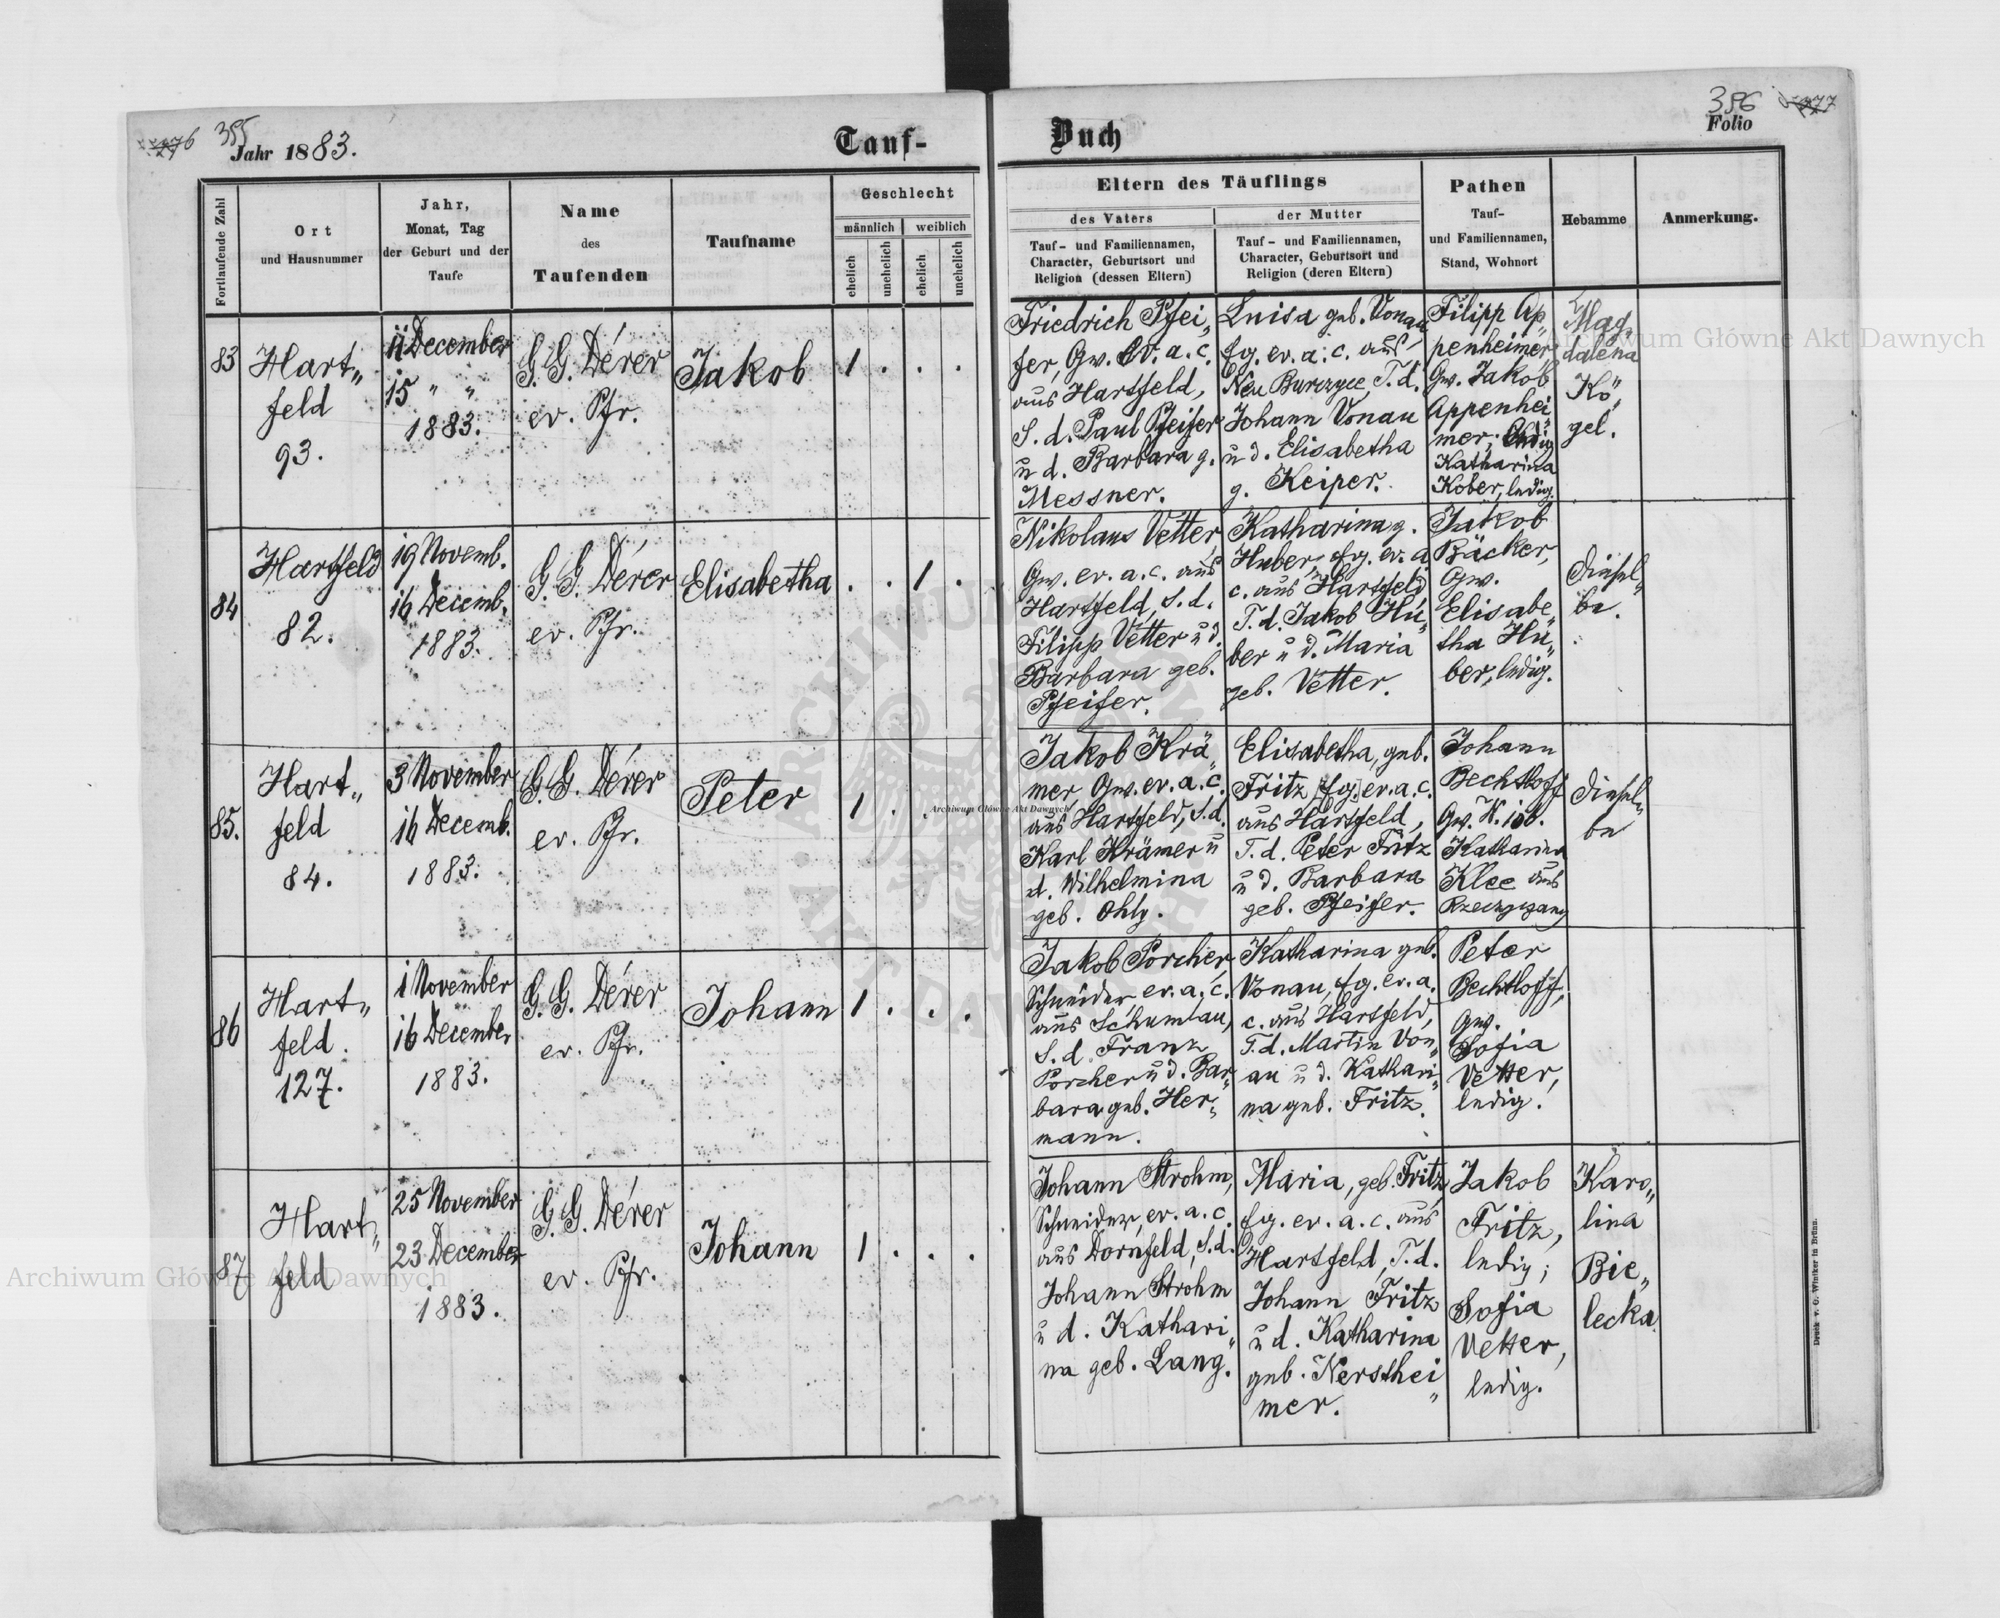 355
Jahr 1883.
Tauf-
Fortlaufende Zahl
Ort
und Hausnummer
Jahr,
Monat, Tag
der Geburt und der
Taufe
Name
des
Taufenden
Taufname
Geschlecht
männlich
weiblich
ehelich
unehelich
ehelich
unehelich
83
Hart„
feld
93.
11 December
15 „ „
1883.
G. G. Dérer
ev. Pfr.
Jakob
1 . . .
84
Hartfeld
82.
19 Novemb.
16 Decemb.
1883.
G. G. Dérer
ev. Pfr.
Elisabetha
. . 1 .
85.
Hart„
feld
84.
3 November
16 Decemb.
1883.
G. G. Dérer
ev. Pfr.
Peter
1 . . .
86
Hart„
feld.
127.
1 November
16 December
1883.
G. G. Dérer
ev. Pfr.
Johann
1 . . .
87
Hart„
feld
25 November
23 December
1883.
G. G. Dérer
ev. Pfr.
Johann
1 . . .
Buch
356
Folio
Eltern des Täuflings
des Vaters
Tauf- und Familiennamen,
Character, Geburtsort und
Religion (dessen Eltern)
der Mutter
Tauf- und Familiennamen,
Character, Geburtsort und
Religion (deren Eltern)
Pathen
Tauf-
und Familiennamen,
Stand, Wohnort
Hebamme
Anmerkung.
Friedrich Pfei„
fer, Gw. ev. a. c.
aus Hartfeld,
S. d. Paul Pfeifer
u d. Barbara g.
Messner.
Luisa geb. Vonau
fg. ev. a. c. aus
Neu Burczyce T. d.
Johann Vonau
u d. Elisabetha
g. Keiper.
Filipp Ap„
penheimer
Gw. Jakob
Appenhei„
mer, ledig
Katharina
Kober, ledig.
Mag„
dalena
Kö„
gel.
Nikolaus Vetter,
Gw. ev. a. c. aus
Hartfeld, S. d.
Filipp Vetter u d.
Barbara geb.
Pfeifer.
Katharina g.
Huber, fg. ev. a
c. aus Hartfeld
T. d. Jakob Hu„
ber u d. Maria
geb. Vetter.
Jakob
Bäcker,
Gw.
Elisabe„
tha Hu„
ber, ledig.
Diesel„
be.
Jakob Krä„
mer Gw. ev. a. c.
aus Hartfeld, S. d.
Karl Krämer u
d. Wilhelmina
geb. Ohly.
Elisabetha, geb.
Fritz fg. ev. a. c.
aus Hartfeld,
T. d. Peter Fritz
u d. Barbara
geb. Pfeifer.
Johann
Bechtloff
Gw.
Katharina
Klee aus
Diesel„
be
Jakob Porcher,
Schneider ev. a. c.
aus Schumlau,
S. d. Franz
Porcher u d. Bar„
bara geb. Her„
mann.
Katharina geb.
Vonau, fg. ev. a.
c. aus Hartfeld,
T. d. Martin Von„
au u d. Kathari„
na geb. Fritz.
Peter
Bechtloff,
Gw.
Sofia
Vetter,
ledig.
Johann Strohm,
Schneider, ev. a. c.
aus Dornfeld, S. d.
Johann Strohm
u d. Kathari„
na geb. Lang.
Maria, geb. Fritz,
fg. ev. a. c. aus
Hartsfeld, T. d.
Johann Fritz
u d. Katharina
geb. Nersthei„
mer.
Jakob
Fritz,
ledig;
Sofia
Vetter,
ledig.
Karo„
lina
Bie„
lecka
Druck v. G. Winiker in Brünn.
Archiwum Główne Akt Dawnych
Archiwum Główne Akt Dawnych
Archiwum Główne Akt Dawnych